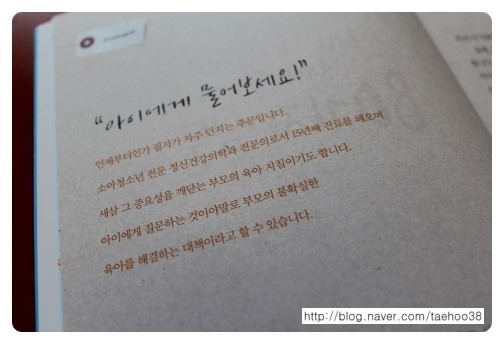 "아이에게 물어보세요!"
언제부터인가 필자가 자주 던지는 주문입니다.
소아청소년 전문 정신건강의학과 전문의로서 15년째 진료를 해오며
새삼 그 중요성을 깨닫는 부모의 육아 지침이기도 합니다.
아이에게 질문하는 것이야말로 부모의 불확실한
육아를 해결하는 대책이라고 할 수 있습니다.
http://blog.naver.com/taehoo38